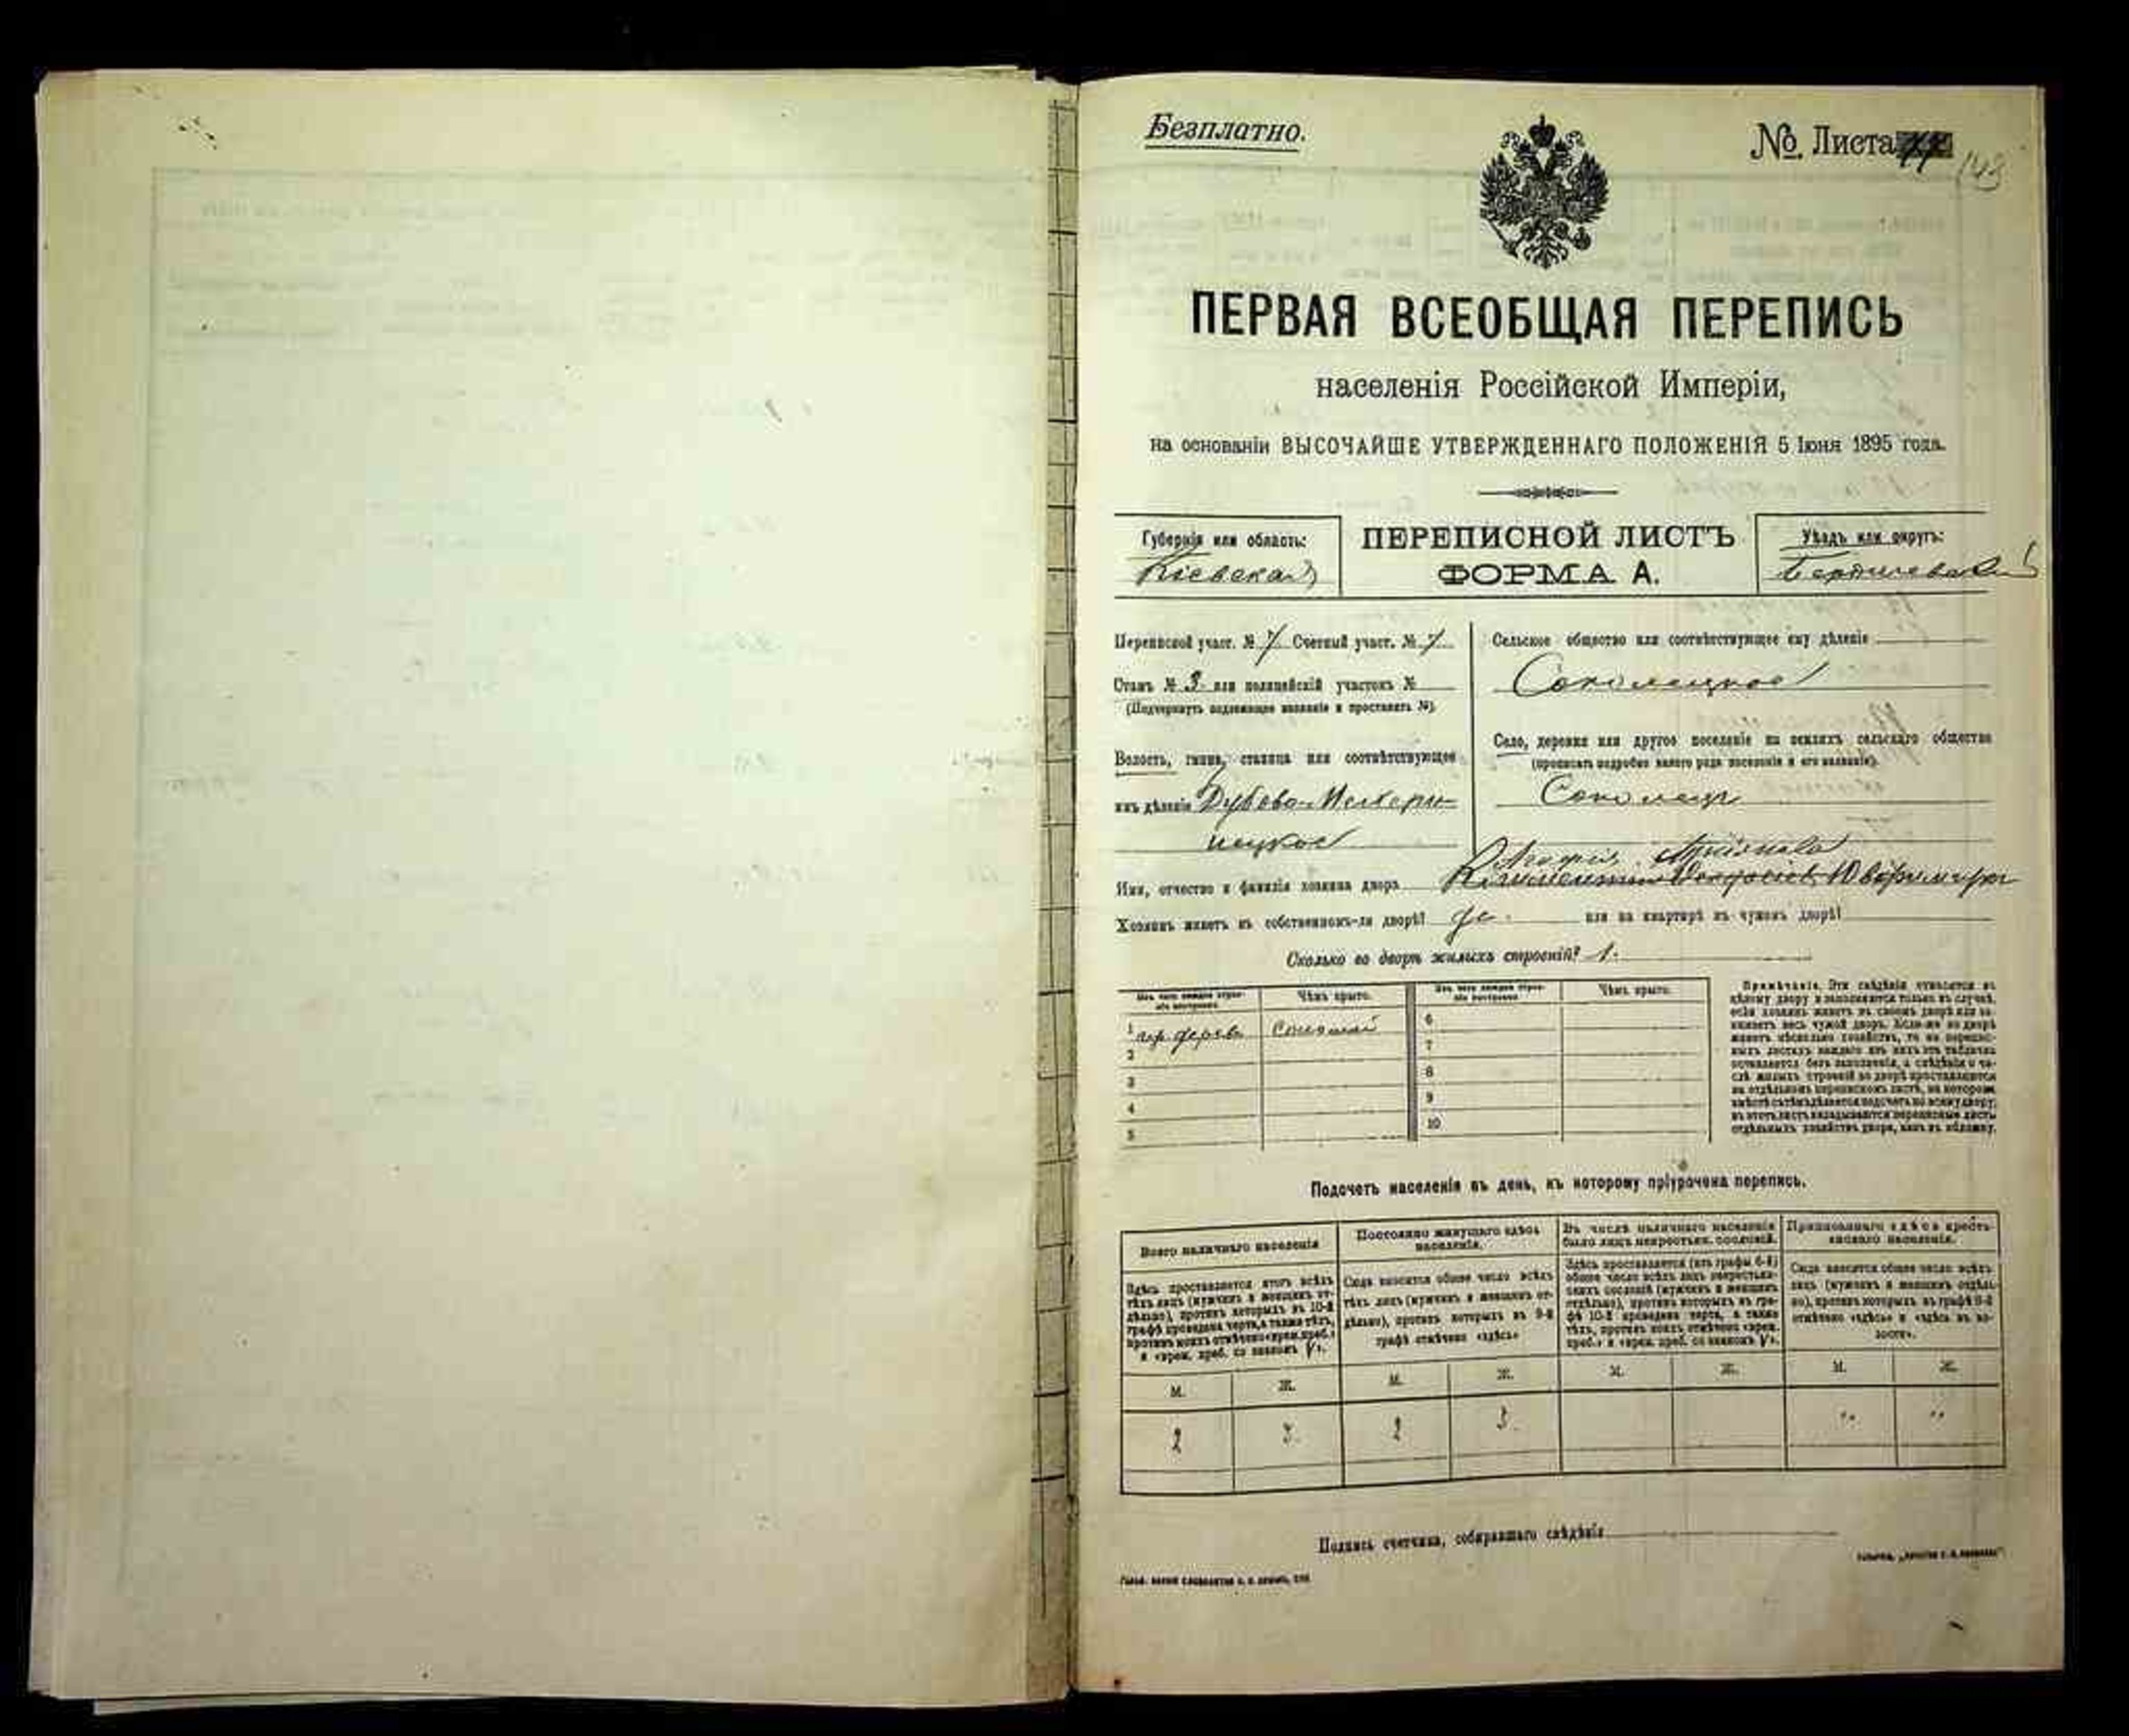 Безплатно.
№ Листа
143
ПЕРВАЯ ВСЕОБЩАЯ ПЕРЕПИСЬ
населенія Россійской Имперіи,
на основаніи ВЫСОЧАЙШЕ УТВЕРЖДЕННАГО ПОЛОЖЕНІЯ 5 Іюня 1895 года.
Губернія или область:
Кіевская
ПЕРЕПИСНОЙ ЛИСТЪ
ФОРМА А.
Уѣздъ или округъ:
Бердичевскій
Переписной участ. № 7 Счетный участ. № 7
Станъ № 3 или полицейскій участокъ №
(Подчеркнуть подлежащее названіе и проставить №).
Волость, гмина, станица или соотвѣтствующее
имъ дѣленіе Дубово-Мехери-
нецкое
Сельское общество или соотвѣтствующее ему дѣленіе
Соколецкое
Село, деревня или другое поселеніе на земляхъ сельскаго общества
(прописать подробно какого рода поселеніе и его названіе).
Соколецъ
Агафія
Имя, отчество и фамилія хозяина двора
Хозяинъ живетъ въ собственномъ-ли дворѣ? да. или на квартирѣ въ чужомъ дворѣ?
Сколько во дворѣ жилыхъ строеній? 1.
Изъ чего каждое строе-
ніе построено.
Чѣмъ крыто.
Изъ чего каждое строе-
ніе построено.
Чѣмъ крыто.
1 дерева Соломой 6
2 7
3 8
4 9
5 10
Примѣчаніе. Эти свѣдѣнія относятся къ
цѣлому двору и заполняются только въ случаѣ,
если хозяинъ живетъ въ своемъ дворѣ или за-
нимаетъ весь чужой дворъ. Если-же во дворѣ
живетъ нѣсколько хозяйствъ, то на перепис-
ныхъ листахъ каждаго изъ нихъ эта табличка
оставляется безъ заполненія, а свѣдѣнія о чи-
слѣ жилыхъ строеній во дворѣ проставляются
на отдѣльномъ переписномъ листѣ, на которомъ
вмѣстѣ съ тѣмъ дѣлается подсчетъ по всему двору;
въ этотъ листъ вкладываются переписные листы
отдѣльныхъ хозяйствъ двора, какъ въ обложку.
Подсчетъ населенія въ день, къ которому пріурочена перепись.
Всего наличнаго населенія
Постоянно живущаго здѣсь
населенія.
Въ числѣ наличнаго населенія
было лицъ некрестьян. сословій.
Приписаннаго здѣсь кресть-
янскаго населенія.
Здѣсь проставляется итогъ всѣхъ
тѣхъ лицъ (мужчинъ и женщинъ от-
дѣльно), противъ которыхъ въ 10-й
графѣ проведена черта, а также тѣхъ,
противъ коихъ отмѣчено «врем. преб.»
и «врем. преб. со знакомъ V».
Сюда вносится общее число всѣхъ
тѣхъ лицъ (мужчинъ и женщинъ от-
дѣльно), противъ которыхъ въ 9-й
графѣ отмѣчено «здѣсь»
Здѣсь проставляется (изъ графы 6-й)
общее число всѣхъ лицъ некрестьян-
скихъ сословій (мужчинъ и женщинъ
отдѣльно), противъ которыхъ въ гра-
фѣ 10-й проведена черта, а также
тѣхъ, противъ коихъ отмѣчено «врем.
преб.» и «врем. преб. со знакомъ V».
Сюда вносится общее число всѣхъ
лицъ (мужчинъ и женщинъ отдѣль-
но), противъ которыхъ въ графѣ 8-й
отмѣчено «здѣсь» и «здѣсь въ во-
лости».
М. Ж. М. Ж. М. Ж. М. Ж.
2 3. 2 3. „ „
Подпись счетчика, собиравшаго свѣдѣнія